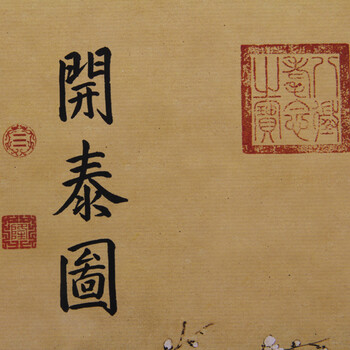 八徵耄念之寶
開泰圖